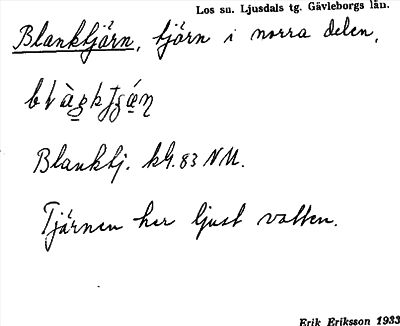 Los sn. Ljusdals tg. Gävleborgs län.
Blanktjärn, tjärn i norra delen.
Blanktj. kbl. 83 NU.
Tjärnen har ljust vatten.
Erik Eriksson 1933